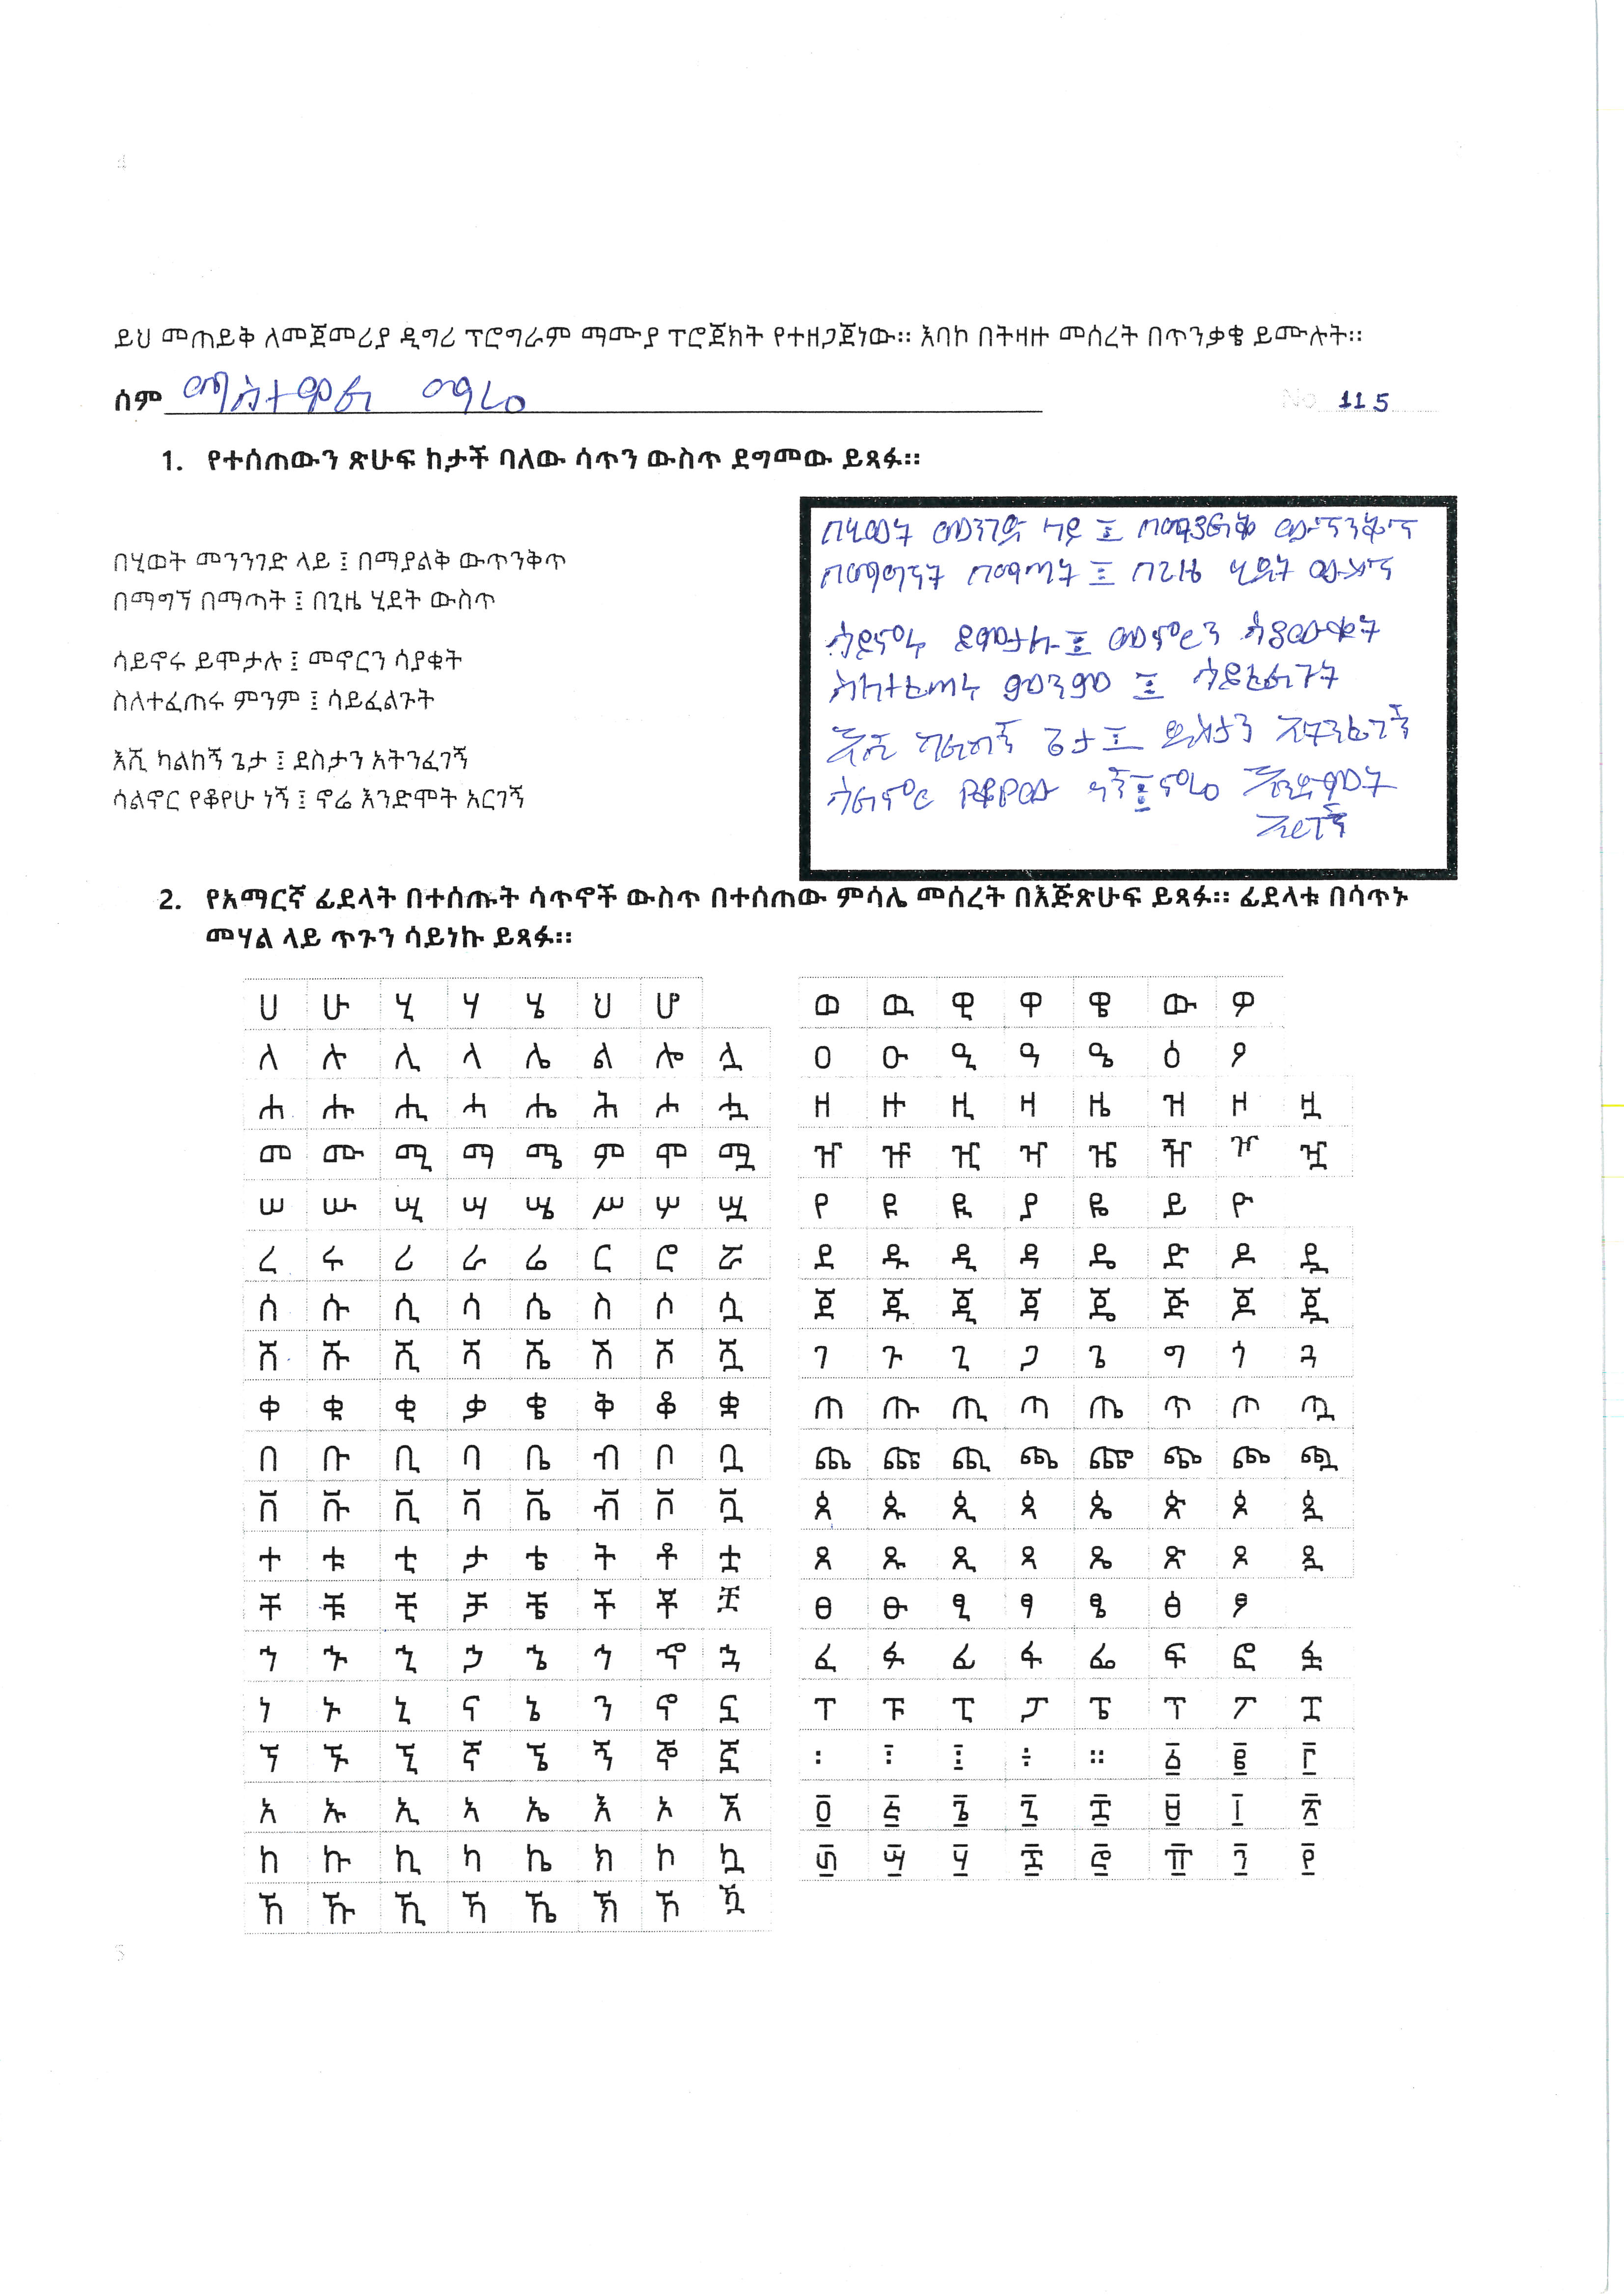 4
ይህ መጠይቅ ለመጀመሪያ ዲግሪ ፕሮግራም ማሙያ ፕሮጀክት የተዘጋጀነው። እባኮ በትዛዙ መሰረት በጥንቃቄ ይሙሉት።
ሰም ማስተዋል ማሬ
No 115
1. የተሰጠውን ጽሁፍ ከታች ባለው ሳጥን ውስጥ ደግመው ይጻፉ።
በሂወት መንንገድ ላይ ፤ በማያልቅ ውጥንቅጥ
በማግኘ በማጣት ፤ በጊዜ ሂደት ውስጥ
ሳይኖሩ ይሞታሉ ፤ መኖርን ሳያቁት
ስለተፈጠሩ ምንም ፤ ሳይፈልጉት
እሺ ካልከኝ ጌታ ፤ ደስታን አትንፈገኝ
ሳልኖር የቆየሁ ነኝ ፤ ኖሬ እንድሞት አርገኝ
በሂወት መንገድ ላይ ፤ በማያልቅ ውጥንቅጥ
በማግኘት በማጣት ፤ በጊዜ ሂደት ውስጥ
ሳይኖሩ ይሞታሉ ፤ መኖርን ሳያውቁት
ስለተፈጠሩ ምንም ፤ ሳይፈልጉት
እሺ ካልከኝ ጌታ ፤ ደስታን አትንፈገኝ
ሳልኖር የቆየሁ ነኝ ፤ ኖሬ እንድሞት
አርገኝ
2. የአማርኛ ፊደላት በተሰጡት ሳጥኖች ውስጥ በተሰጠው ምሳሌ መሰረት በእጅጽሁፍ ይጻፉ። ፊደላቱ በሳጥኑ
መሃል ላይ ጥጉን ሳይነኩ ይጻፉ።
ሀ ሁ ሂ ሃ ሄ ህ ሆ
ለ ሉ ሊ ላ ሌ ል ሎ ሏ
ሐ ሑ ሒ ሓ ሔ ሕ ሖ ሗ
መ ሙ ሚ ማ ሜ ም ሞ ሟ
ሠ ሡ ሢ ሣ ሤ ሥ ሦ ሧ
ረ ሩ ሪ ራ ሬ ር ሮ ሯ
ሰ ሱ ሲ ሳ ሴ ስ ሶ ሷ
ሸ ሹ ሺ ሻ ሼ ሽ ሾ ሿ
ቀ ቁ ቂ ቃ ቄ ቅ ቆ ቋ
በ ቡ ቢ ባ ቤ ብ ቦ ቧ
ቨ ቩ ቪ ቫ ቬ ቭ ቮ ቯ
ተ ቱ ቲ ታ ቴ ት ቶ ቷ
ቸ ቹ ቺ ቻ ቼ ች ቾ ቿ
ኀ ኁ ኂ ኃ ኄ ኅ ኆ ኋ
ነ ኑ ኒ ና ኔ ን ኖ ኗ
ኘ ኙ ኚ ኛ ኜ ኝ ኞ ኟ
አ ኡ ኢ ኣ ኤ እ ኦ ኧ
ከ ኩ ኪ ካ ኬ ክ ኮ ኳ
ኸ ኹ ኺ ኻ ኼ ኽ ኾ ዃ
ወ ዉ ዊ ዋ ዌ ው ዎ
ዐ ዑ ዒ ዓ ዔ ዕ ዖ
ዘ ዙ ዚ ዛ ዜ ዝ ዞ ዟ
ዠ ዡ ዢ ዣ ዤ ዥ ዦ ዧ
የ ዩ ዪ ያ ዬ ይ ዮ
ደ ዱ ዲ ዳ ዴ ድ ዶ ዷ
ጀ ጁ ጂ ጃ ጄ ጅ ጆ ጇ
ገ ጉ ጊ ጋ ጌ ግ ጎ ጓ
ጠ ጡ ጢ ጣ ጤ ጥ ጦ ጧ
ጨ ጩ ጪ ጫ ጬ ጭ ጮ ጯ
ጰ ጱ ጲ ጳ ጴ ጵ ጶ ጷ
ጸ ጹ ጺ ጻ ጼ ጽ ጾ ጿ
ፀ ፁ ፂ ፃ ፄ ፅ ፆ
ፈ ፉ ፊ ፋ ፌ ፍ ፎ ፏ
ፐ ፑ ፒ ፓ ፔ ፕ ፖ ፗ
፡ ፣ ፤ ÷ ። ፩ ፪ ፫
፬ ፭ ፮ ፯ ፰ ፱ ፲ ፳
፴ ፵ ፶ ፷ ፸ ፹ ፺ ፻
5